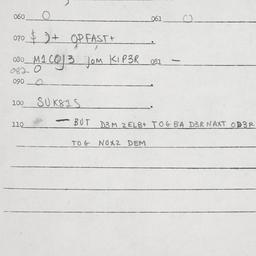 060 O 061 O
070 $ )+ OPFAST+
080 M1COJ3 JOM K1P3R 081 —
082 O
090 O
100 SUK81S
110 — BUT D3M 2ELB+ TOG BA D3R NAXT OD3R
TOG NOX2 DEM